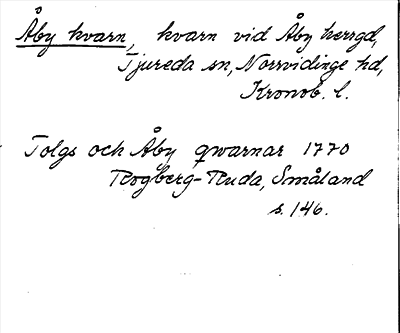 Åby kvarn, kvarn vid Åby herrgd,
Tjureda sn, Norrvidinge hd,
Kronob. l.
Tolgs och Åby qwarnar 1770
Rogberg-Ruda, Småland
s. 146.